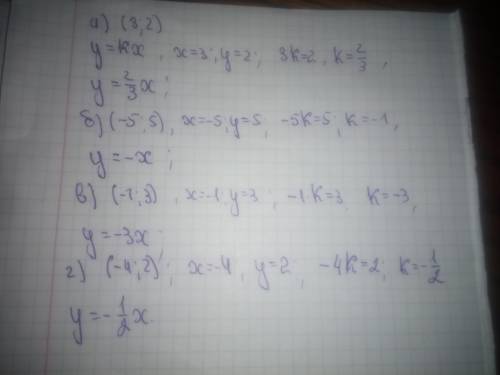 а) (3;2)
y=kx, x=3; y=2; 3k=2, k=2/3,
y=2/3x;
б) (-5; 5), x=-5, y=5, -5k=5; k=-1,
y=-x;
в) (-1; 3), x=-1, y=3; -1·k=3, k=-3,
y=-3x;
г) (-4; 2); x=-4, y=2; -4k=2; k=-1/2
y=-1/2x.